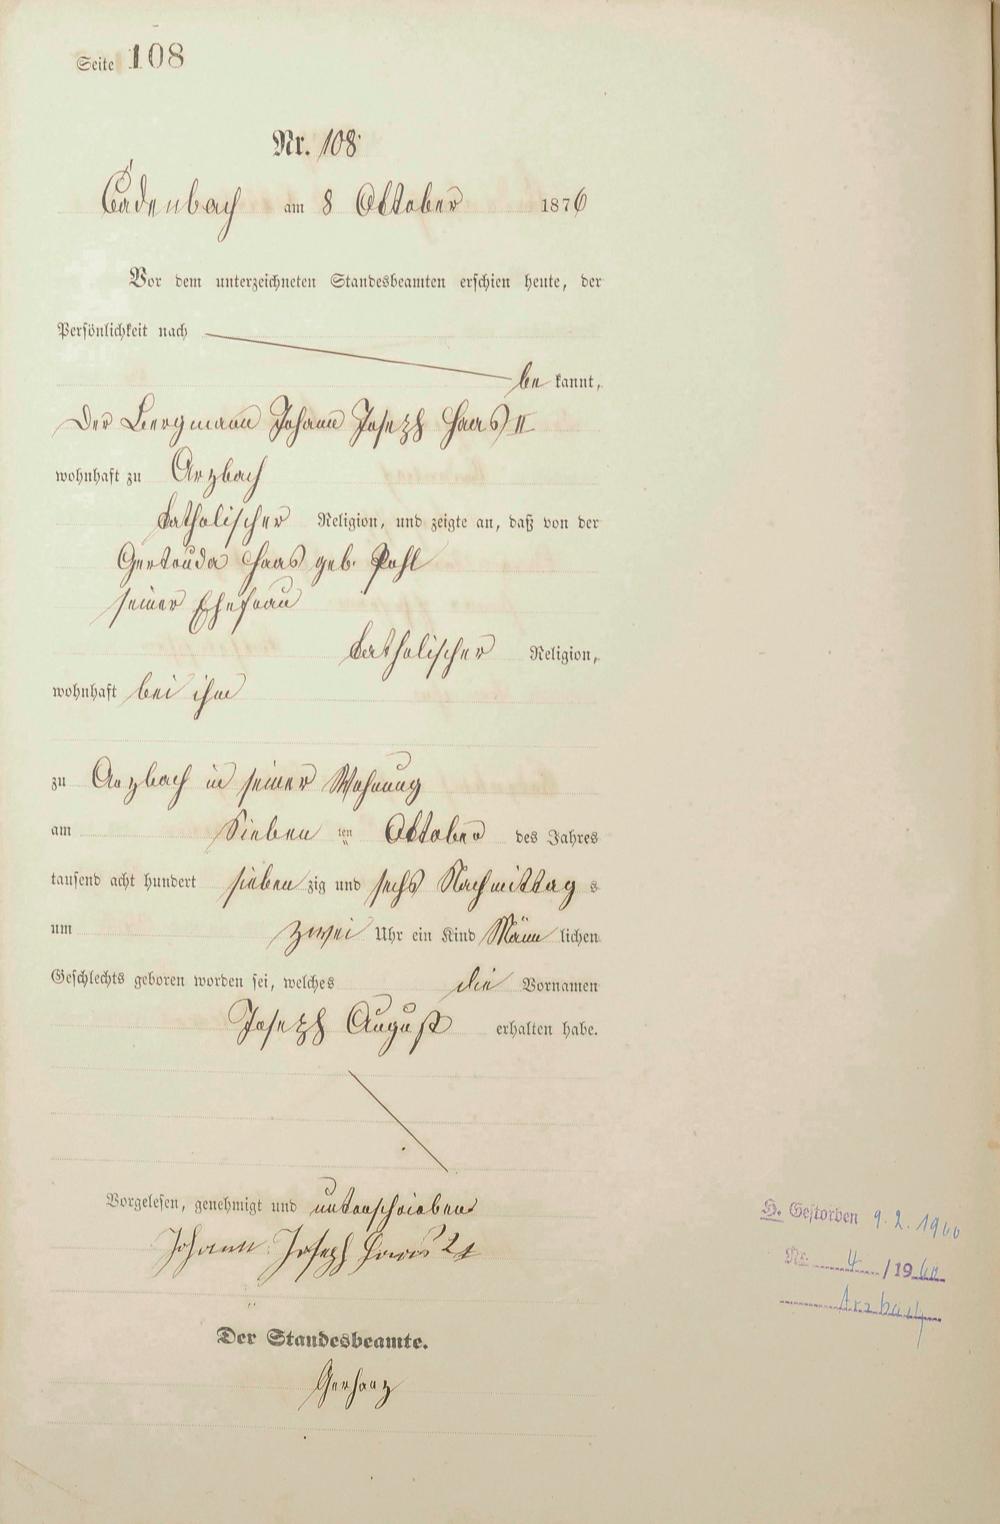 Seite 108
Nr. 108
Cadenbach am 8 Oktober 1876
Vor dem unterzeichneten Standesbeamten erschien heute, der
Persönlichkeit nach
be kannt,
Der Bergmann Johann Joseph Haas II
wohnhaft zu Arzbach
katholischer Religion, und zeigte an, daß von der
Gertruda Haas geb. Pohl
seiner Ehefrau
katholischer Religion,
wohnhaft bei ihm
zu Arzbach in seiner Wohnung
am Sieben ten Oktober des Jahres
tausend acht hundert sieben zig und sechs Nachmittag s
um zwei Uhr ein Kind Männ lichen
Geschlechts geboren worden sei, welches die Vornamen
Joseph August erhalten habe.
Vorgelesen, genehmigt und unterschrieben
Johann Joseph Haas 2t
Der Standesbeamte.
Gerharz
H. Gestorben 9.2.1960
Nr. 4 /1960
Arzbach